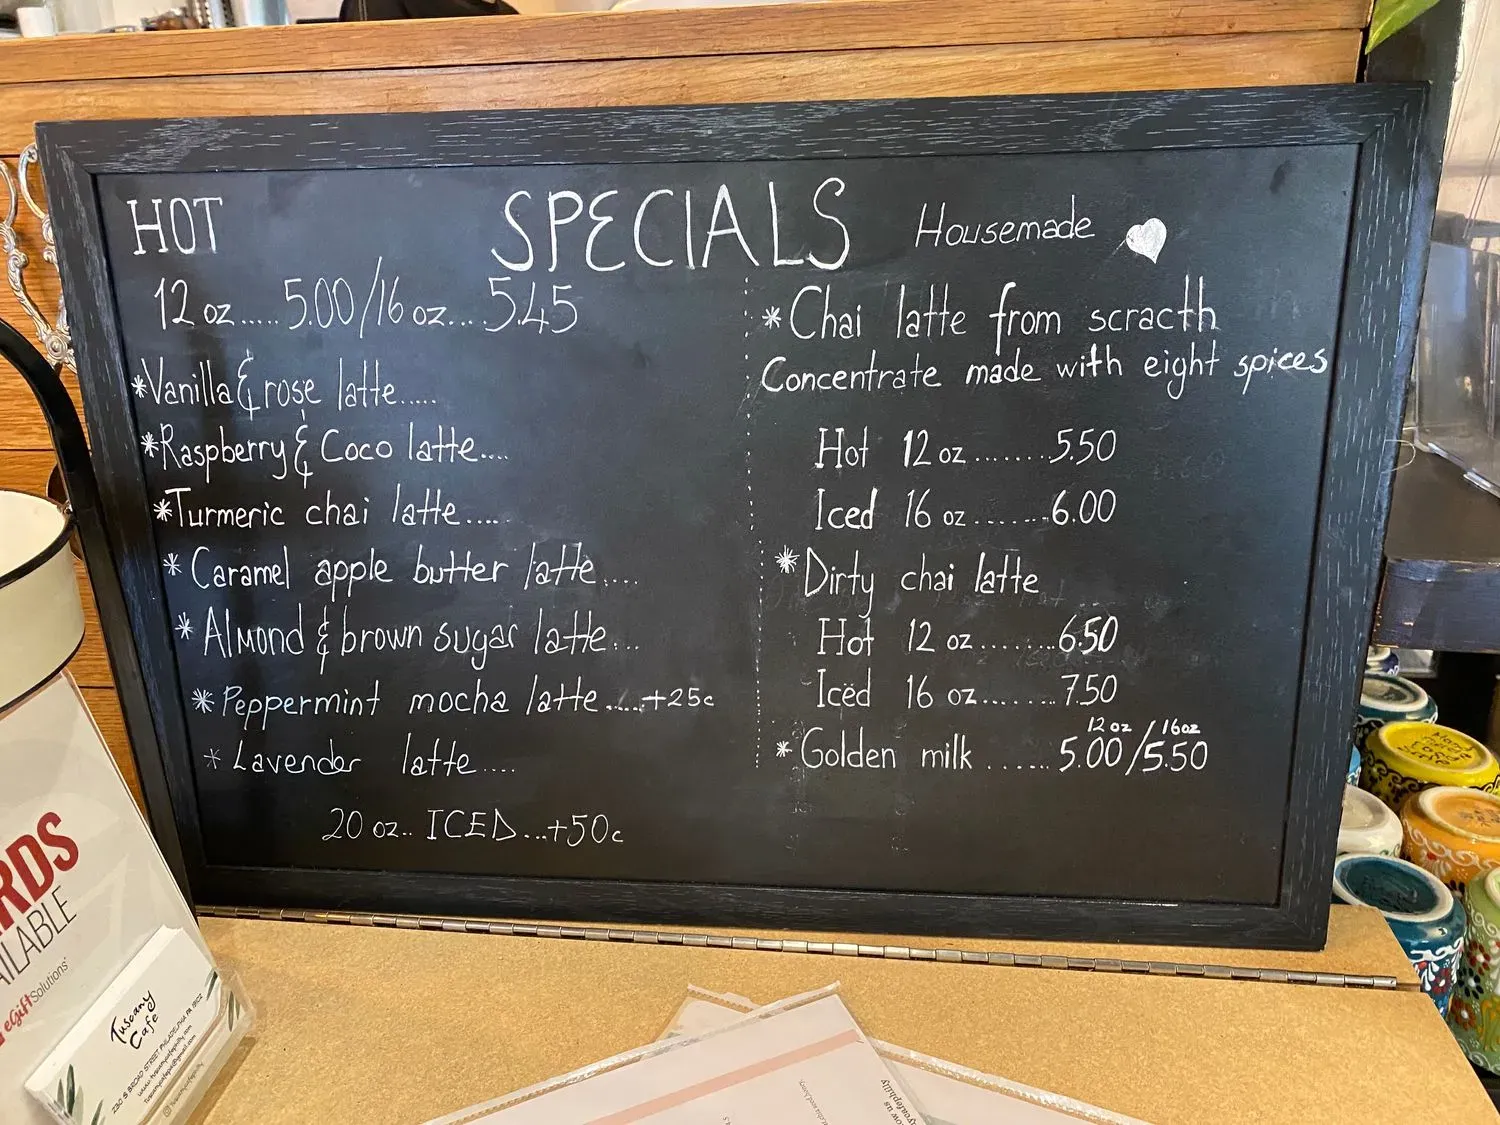 HOT
SPECIALS
12 oz.....5.00/16 oz...5.45
*Vanilla & rose latte.....
*Raspberry & Coco latte....
*Turmeric chai latte.....
* Caramel apple butter latte....
* Almond & brown sugar latte...
* Peppermint mocha latte.....+25c
* Lavender latte....
20 oz.. ICED...+50c
Housemade
* Chai latte from scracth
Concentrate made with eight spices
Hot 12 oz.......5.50
Iced 16 oz.......6.00
* Dirty chai latte
Hot 12 oz........6.50
Iced 16 oz.......7.50
12 oz / 16oz
* Golden milk ......5.00/5.50
RDS
AILABLE
eGiftSolutions
Tuscany
Cafe